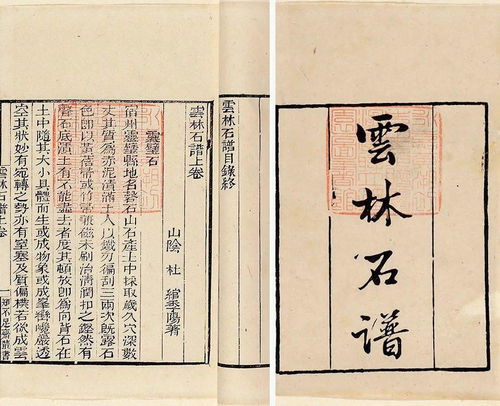 雲林石譜
雲林石譜目錄終
雲林石譜上卷
山陰 杜 綰季陽著
靈璧石
宿州靈璧縣地名磬石山石產土中採取歲久穴深數
丈其質爲赤泥漬滿土人以鐵刃徧刮三兩次既露石
色即以黃蓓帚或竹帚兼磁末刷治清潤扣之鏗然有
聲石底漬土有不能盡去者度其頓放即爲向背石在
土中隨其大小具體而生或成物象或成峯巒巉巖透
空其狀妙有宛轉之勢亦有窒塞及質偏樸若欲成雲
雲林石譜上卷 一 知不足齋叢書